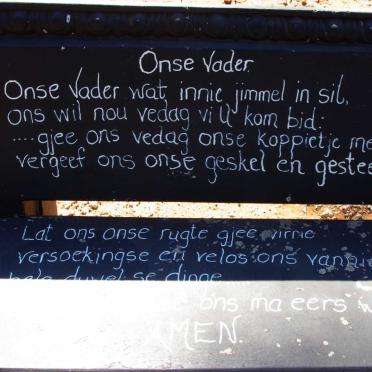 Onse Vader
Onse Vader wat innie jimmel in sit,
ons wil nou vedag vi U kom bid:
....gjee ons vedag onse koppietjie
vergeef ons onse geskel en
Lat ons onse rugte gjee virrie
versoekingse en velos ons van
duwel se dinge
ons ma eers
AMEN.